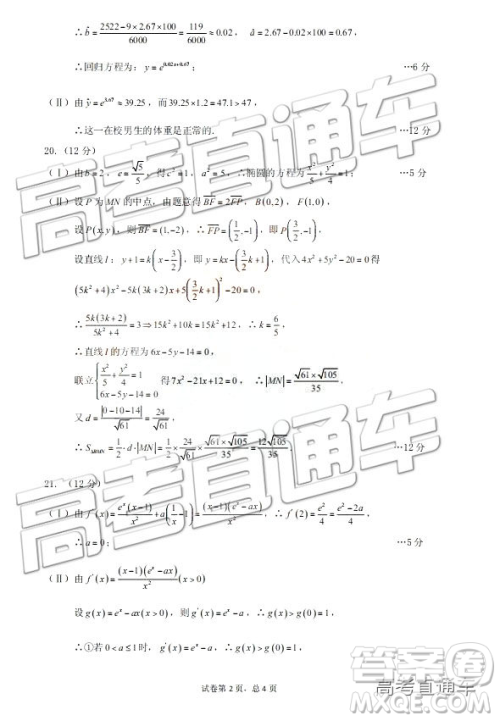 ∴ b̂ = (2522−9×2.67×100)/6000 = 119/6000 ≈ 0.02 , â = 2.67−0.02×100 = 0.67 ,
∴回归方程为：y = e^{0.02x+0.67} ； …6 分
（Ⅱ）由 ŷ = e^{3.67} ≈ 39.25 ，而 39.25×1.2 = 47.1 > 47 ，
∴这一在校男生的体重是正常的. …12 分
20. （12 分）
（Ⅰ）由 b = 2 ，e = √5/5 ，得 c² = 1 ，a² = 5 ，∴椭圆的方程为 x²/5 + y²/4 = 1 ； …5 分
（Ⅱ）设 P 为 MN 的中点，由题意得 BF = 2FP ，B(0,2) ，F(1,0) ，
设 P(x,y) ，则 BF = (1,−2) ，∴ FP = (1/2,−1) ，即 P(3/2,−1)
设直线 l ：y+1 = k(x−3/2) ，即 y = kx−(3/2k+1) ，代入 4x²+5y²−20 = 0 得
(5k²+4)x²−5k(3k+2)x+5(3/2k+1)²−20 = 0 ，
∴ 5k(3k+2)/(5k²+4) = 3 ⇒ 15k²+10k = 15k²+12 ，∴ k = 6/5
∴直线 l 的方程为 6x−5y−14 = 0 ，
联立 { x²/5 + y²/4 = 1 6x−5y−14 = 0 得 7x²−21x+12 = 0 ，∴ |MN| = √61×√105/35 ，
又 d = |0−10−14|/√61 = 24/√61 ，
∴ S = 1/2·d·|MN| = 1/2×24/√61×√61×√105/35 = 12√105/35 …12 分
21. （12 分）
（Ⅰ）由 f′(x) = e^x(x−1)/x² + a(1/x−1) = (x−1)(e^x−ax)/x² ，∴ f′(2) = e²/4 = (e²−2a)/4 ，
∴ a = 0 ； …5 分
（Ⅱ）由 f′(x) = (x−1)(e^x−ax)/x² (x>0)
设 g(x) = e^x−ax(x>0) ，g′(x) = e^x−a ，∴ g(x) > g(0) = 1 ，
∴①若 0<a≤1 时，g′(x) = e^x−a ，∴ g(x) > g(0) = 1 ，
试卷第 2 页，总 4 页
高考直通车
高考直通车
高考直通车
答案圈